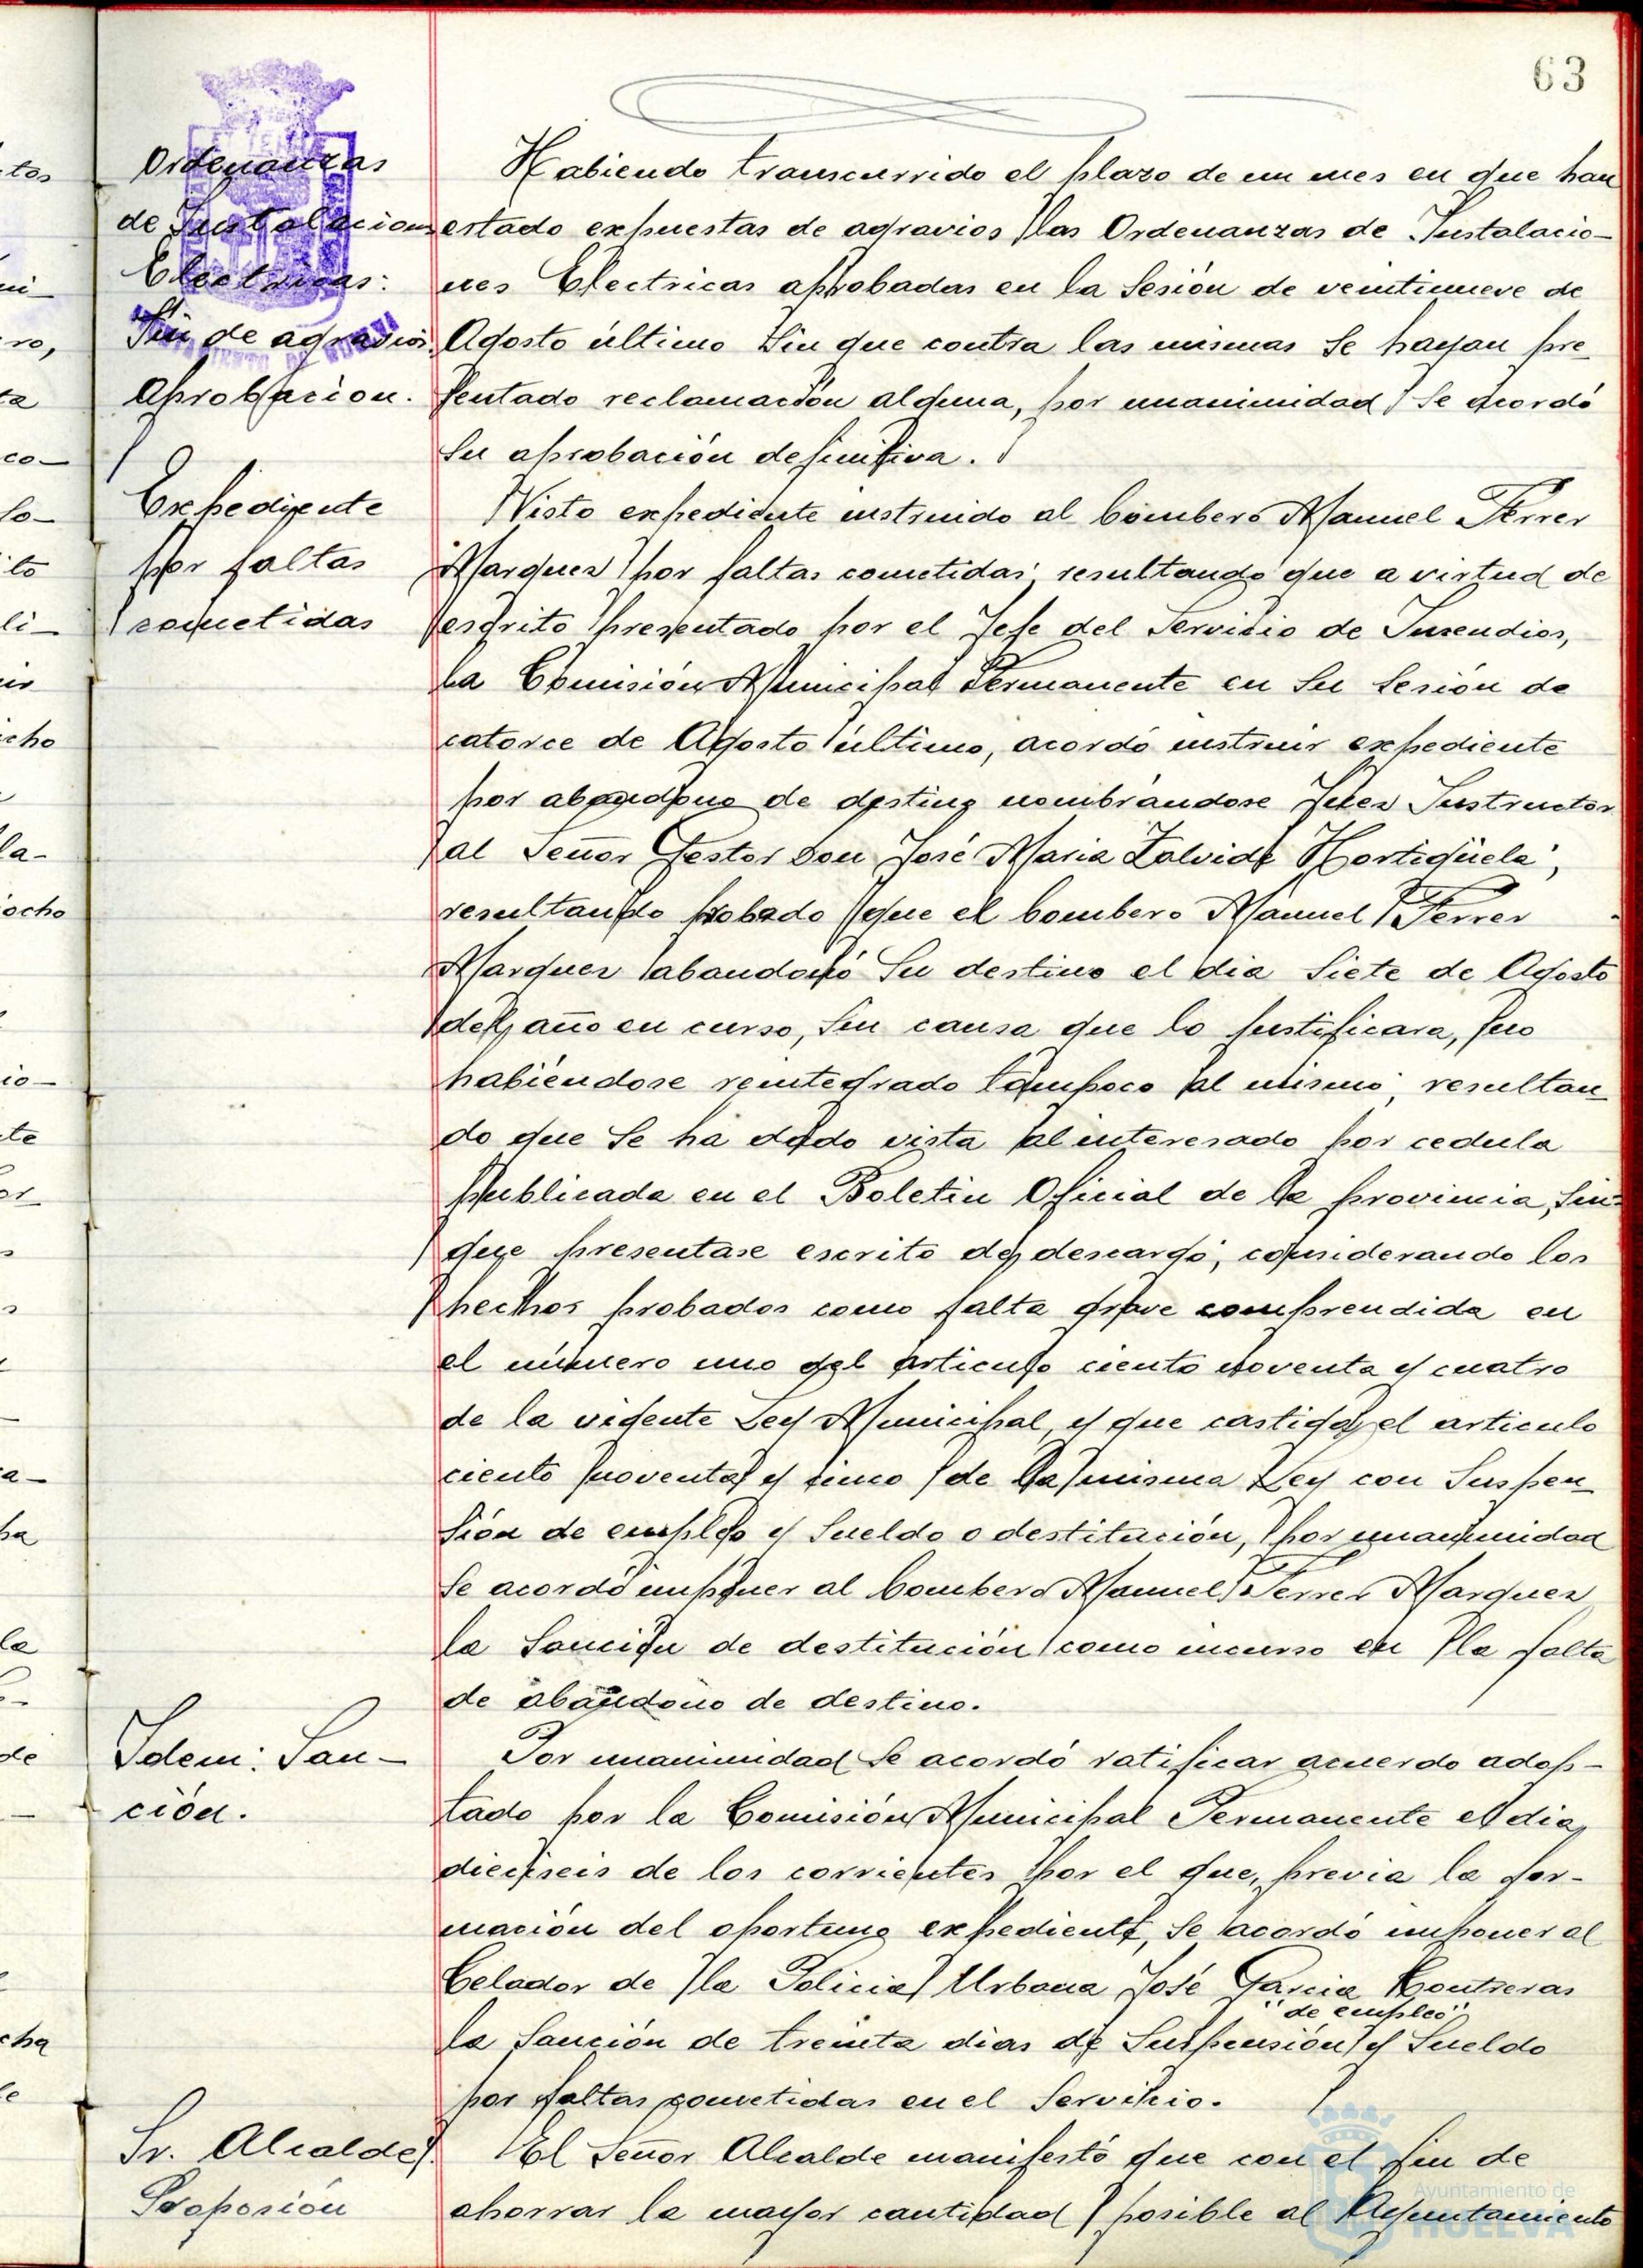 63
Ordenanzas
de Instalaciones
Electricas:
Fin de agravios.
Aprobación.
Habiendo transcurrido el plazo de un mes en que han
estado expuestas de agravios las Ordenanzas de Instalacio-
nes Electricas aprobadas en la Sesión de veintinueve de
Agosto último sin que contra las mismas se hayan pre-
sentado reclamación alguna, por unanimidad se acordó
su aprobación definitiva.
Expediente
por faltas
cometidas
Visto expediente instruido al bombero Manuel Ferrer
Marquez por faltas cometidas; resultando que a virtud de
escrito presentado por el Jefe del Servicio de Incendios,
la Comisión Municipal Permanente en su sesión de
catorce de Agosto último, acordó instruir expediente
por abandono de destino nombrandose Juez Instructor
al Señor Gestor Don José Maria Zalvide Hortigüela;
resultando probado que el bombero Manuel Ferrer
Marquez abandonó su destino el dia siete de Agosto
del año en curso, sin causa que lo justificara, no
habiéndose reintegrado tampoco al mismo; resultan-
do que se ha dado vista al interesado por cedula
publicada en el Boletin Oficial de la provincia, sin
que presentase escrito de descargo; considerando los
hechos probados como falta grave comprendida en
el número uno del articulo ciento noventa y cuatro
de la vigente Ley Municipal, y que castiga el articulo
ciento noventa y cinco de la misma Ley con suspen-
sión de empleo y sueldo o destitución, por unanimidad
se acordó imponer al bombero Manuel Ferrer Marquez
la sanción de destitución como incurso en la falta
de abandono de destino.
Idem: San-
ción.
Por unanimidad se acordó ratificar acuerdo adop-
tado por la Comisión Municipal Permanente el dia
dieciseis de los corrientes por el que, previa la for-
mación del oportuno expediente, se acordó imponer al
Celador de la Policia Urbana José Garcia Contreras
"de empleo"
la sanción de treinta dias de suspensión y sueldo
por faltas cometidas en el servicio.
Sr. Alcalde.
Proposión
El Señor Alcalde manifestó que con el fin de
ahorrar la mayor cantidad posible al Ayuntamiento
Ayuntamiento de
HUELVA